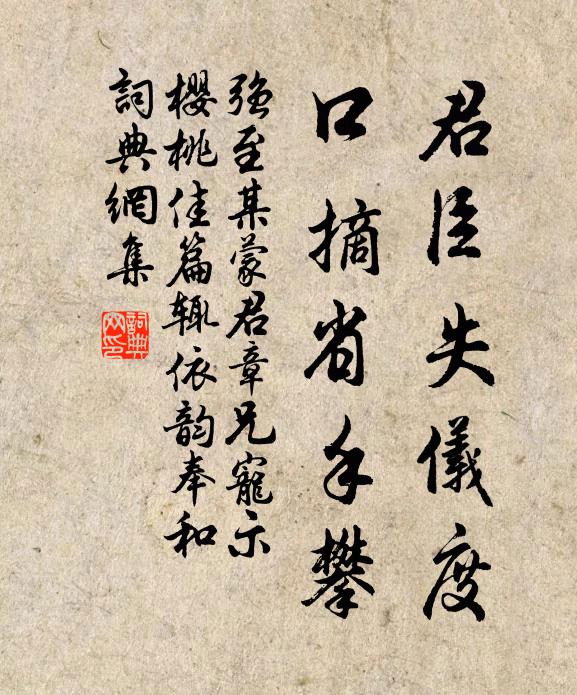 君臣失儀度
口摘省手攀
強至某蒙君章兄寵示
櫻桃佳篇輒依韵奉和
詞典網集
詞典网印